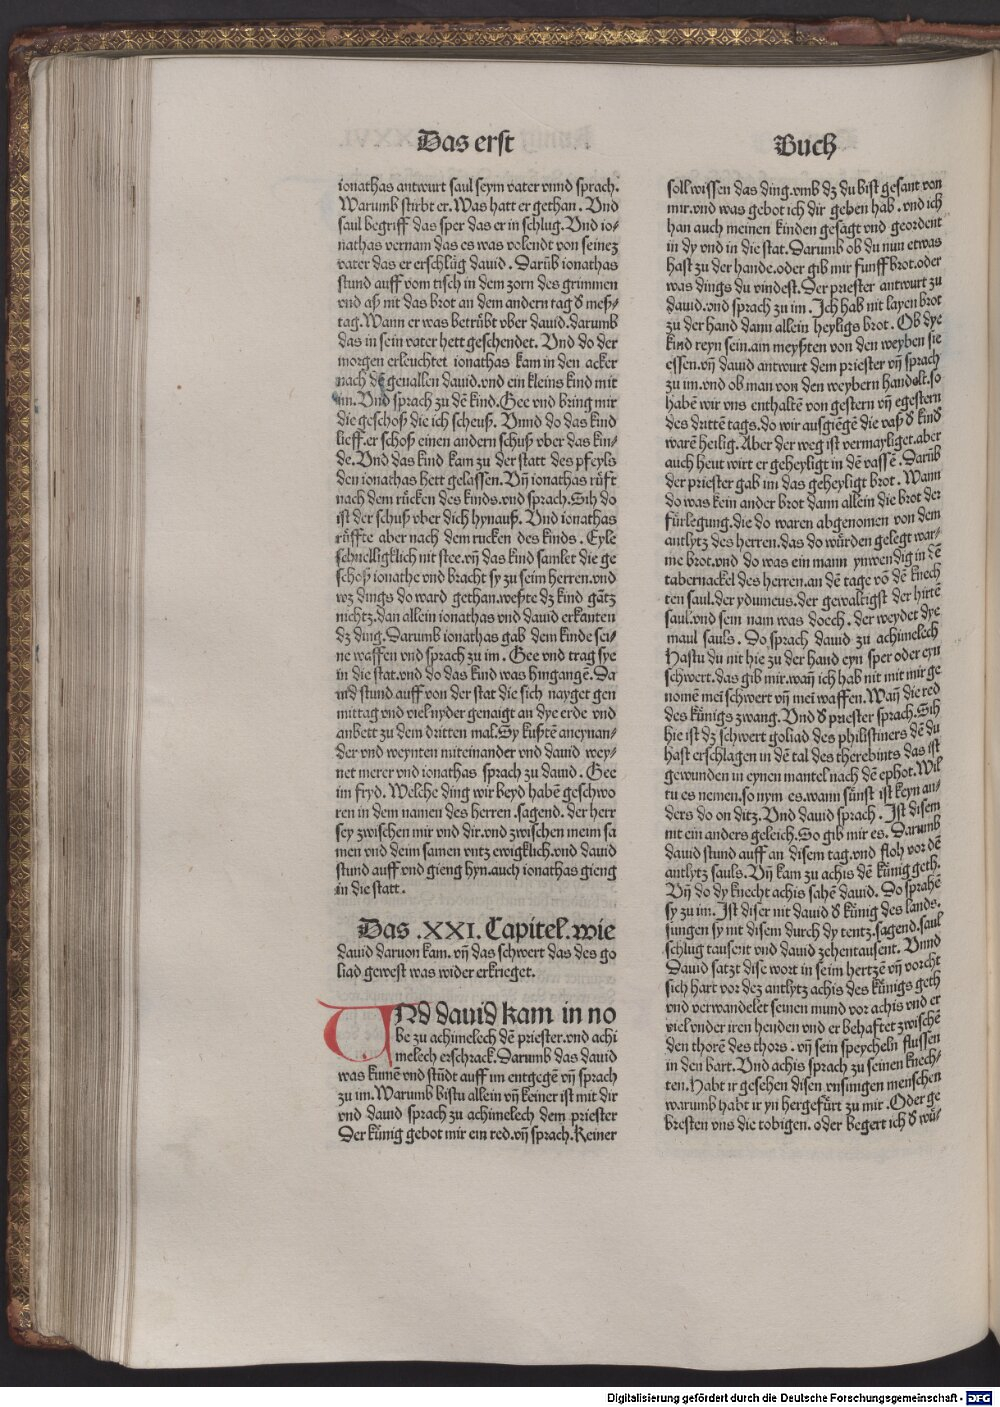 Das erst
Buch
ionathas antwurt saul seym vater vnnd sprach.
Warumb stirbt er. Was hatt er gethan. Vnd
saul begriff das sper das er in schlug. Vnd io-
nathas vernam das es was volendt von seinez
vater das er erschlüg dauid. Darüb ionathas
stund auff vom tisch in dem zorn des grimmen
vnd aß nit das brot an dem andern tag d̕ meß-
tag. Wann er was betrübt vber dauid. darumb
das in sein vater hett geschendet. Vnd do der
morgen erleuchtet ionathas kam in den acker
nach dẽ geuallen dauid. vnd ein kleins kind mit
im. Vnd sprach zu dẽ kind. Gee vnd bring mir
die geschoß die ich scheuß. Vnnd do das kind
lieff. er schoß einen andern schuß vber das kin-
de. Vnd das kind kam zu der statt des pfeyls
den ionathas hett gelassen. Vñ ionathas rüfft
nach dem rücken des kinds. vnd sprach. Sih do
ist der schuß vber dich hynauß. Vnd ionathas
rüffte aber nach dem rucken des kinds. Eyle
schnelligklich nit stee. vñ das kind samlet die ge
schoß ionathe vnd bracht sy zu seim herren. vnd
wz dings do ward gethan. weßte dz kind gãtz
nichtz. dan allein ionathas vnd dauid erkanten
dz ding. Darumb ionathas gab dem kinde sei-
ne waffen vnd sprach zu im. Gee vnd trag sye
in die stat. vnd do das kind was hingangẽ. Da
uid stund auff von der stat die sich nayget gen
mittag vnd viel nyder genaigt an dye erde vnd
anbett zu dem dritten mal. Sy kußtẽ aneynan-
der vnd weynten miteinander vnd dauid wey-
net merer vnd ionathas sprach zu dauid. Gee
im fryd. Welche ding wir beyd habẽ geschwo
ren in dem namen des herren. sagend. der herr
sey zwischen mir vnd dir. vnd zwischen meim sa
men vnd deim samen vntz ewigklich. vnd dauid
stund auff vnd gieng hyn. auch ionathas gieng
in die statt.
Das .XXI. Capitel. wie
dauid daruon kam. vñ das schwert das des go
liad gewest was wider erkrieget.
Vnd dauid kam in no
be zu achimelech dẽ priester. vnd achi
melech erschrack. Darumb das dauid
was kumẽ vnd stündt auff im entgegẽ vñ sprach
zu im. Warumb bistu allein vñ keiner ist mit dir
vnd dauid sprach zu achimelech dem priester
Der künig gebot mir ein red. vñ sprach. Keiner
soll wissen das ding. vmb dz du bist gesant von
mir. vnd was gebot ich dir geben hab. vnd ich
han auch meinen kinden gesagt vnd geordent
in dy vnd in die stat. Darumb ob du nun etwas
hast zu der hande. oder gib mir funff brot. oder
was dings du vindest. Der priester antwurt zu
dauid. vnd sprach zu im. Ich hab nit layen brot
zu der hand dann allein heyligs brot. Ob dye
kind reyn sein. am meyßten von den weyben sie
essen. vñ dauid antwurt dem priester vñ sprach
zu im. vnd ob man von den weybern handelt. so
habẽ wir vns enthaltẽ von gestern vñ egestern
des drittẽ tags. do wir ausgiẽgẽ die vaß d̕ kind̕
warẽ heilig. Aber der weg ist vermayliget. aber
auch heut wirt er geheyligt in dẽ vassẽ. Darüb
der priester gab im das geheyligt brot. Wann
do was kein ander brot dann allein die brot der
fürlegung. die do waren abgenomen von dem
antlytz des herren. das do würden gelegt war-
me brot. vnd do was ein mann ynwendig in dẽ
tabernackel des herren. an dẽ tage võ dẽ knech
ten saul. der ydumeus. der gewaltigst der hirtẽ
saul. vnd sein nam was doech. der weydet dye
maul sauls. Do sprach dauid zu achimelech
Hastu du nit hie zu der hand eyn sper oder eyn
schwert. das gib mir. wañ ich hab nit mit mir ge
nomẽ mei schwert vñ mei waffen. Wañ die red
des künigs zwang. Vnd d̕ priester sprach. Sih
hie ist dz schwert goliad des philistiners dẽ du
hast erschlagen in dẽ tal des therebints das ist
gewunden in eynen mantel nach dẽ ephot. Wil
tu es nemen. so nym es. wann sünst ist keyn an-
ders do on ditz. Vnd dauid sprach. Ist disem
nit ein anders geleich. So gib mir es. Darumb
dauid stund auff an disem tag. vnd floh vor dẽ
antlytz sauls. Vñ kam zu achis dẽ künig geth.
Vñ do dy knecht achis sahẽ dauid. Do sprachẽ
sy zu im. Ist diser nit dauid d̕ künig des lands.
sungen sy nit disem durch dy tentz. sagend. saul
schlug tausent vnd dauid zehentausent. Vnnd
Dauid satzt dise wort in seim hertzẽ vñ vorcht
sich hart vor dez antlytz achis des künigs geth
vnd verwandelet seinen mund vor achis vnd er
viel vnder iren henden vnd er behaftet zwischẽ
den thorẽ des thors. vñ sein speycheln flussen
in den bart. Vnd achis sprach zu seinen knech-
ten. Habt ir gesehen disen vnsinigen menschen
warumb habt ir yn hergefürt zu mir. Oder ge
bresten vns die tobigen. oder begert ich d̕ wü-
Digitalisierung gefördert durch die Deutsche Forschungsgemeinschaft - DFG